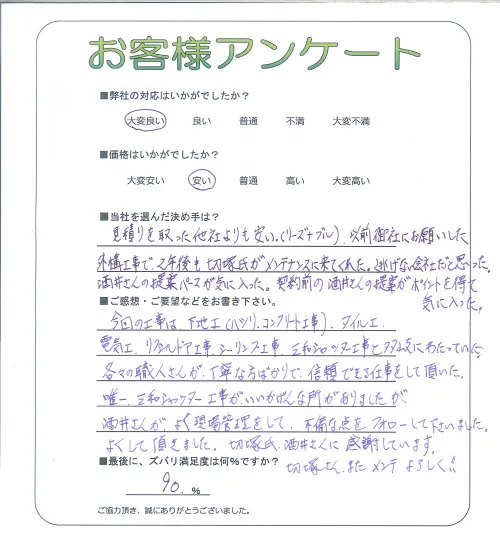 お客様アンケート
■弊社の対応はいかがでしたか？
大変良い 良い 普通 不満 大変不満
■価格はいかがでしたか？
大変安い 安い 普通 高い 大変高い
■当社を選んだ決め手は？
見積りを取った他社よりも安い。(リーズナブル)、以前御社にお願いした
外構工事で、2年後も切塚氏がメンテナンスに来てくれた。逃げない会社だと思った。
酒井さんの提案パースが気に入った。契約前の酒井さんの提案がポイントを得て
気に入った。
■ご感想・ご要望などをお書き下さい。
今回の工事は、下地工(ハツリ、コンクリート工事)、タイル工、
電気工、リフォルドア工事、シーリング工事、三和シャッター工事と多岐にわたっていた
各々の職人さんが、丁寧な方ばかりで、信頼できる仕事をして頂いた。
唯一、三和シャッター工事がいいかげんな所がありましたが
酒井さんが、よく現場管理をして、不備な点をフォローして下さいました。
よくして頂きました。切塚氏、酒井さんに感謝しています。
切塚さん、また メンテ よろしく!!
■最後に、ズバリ満足度は何%ですか？
90. %
ご協力頂き、誠にありがとうございました。